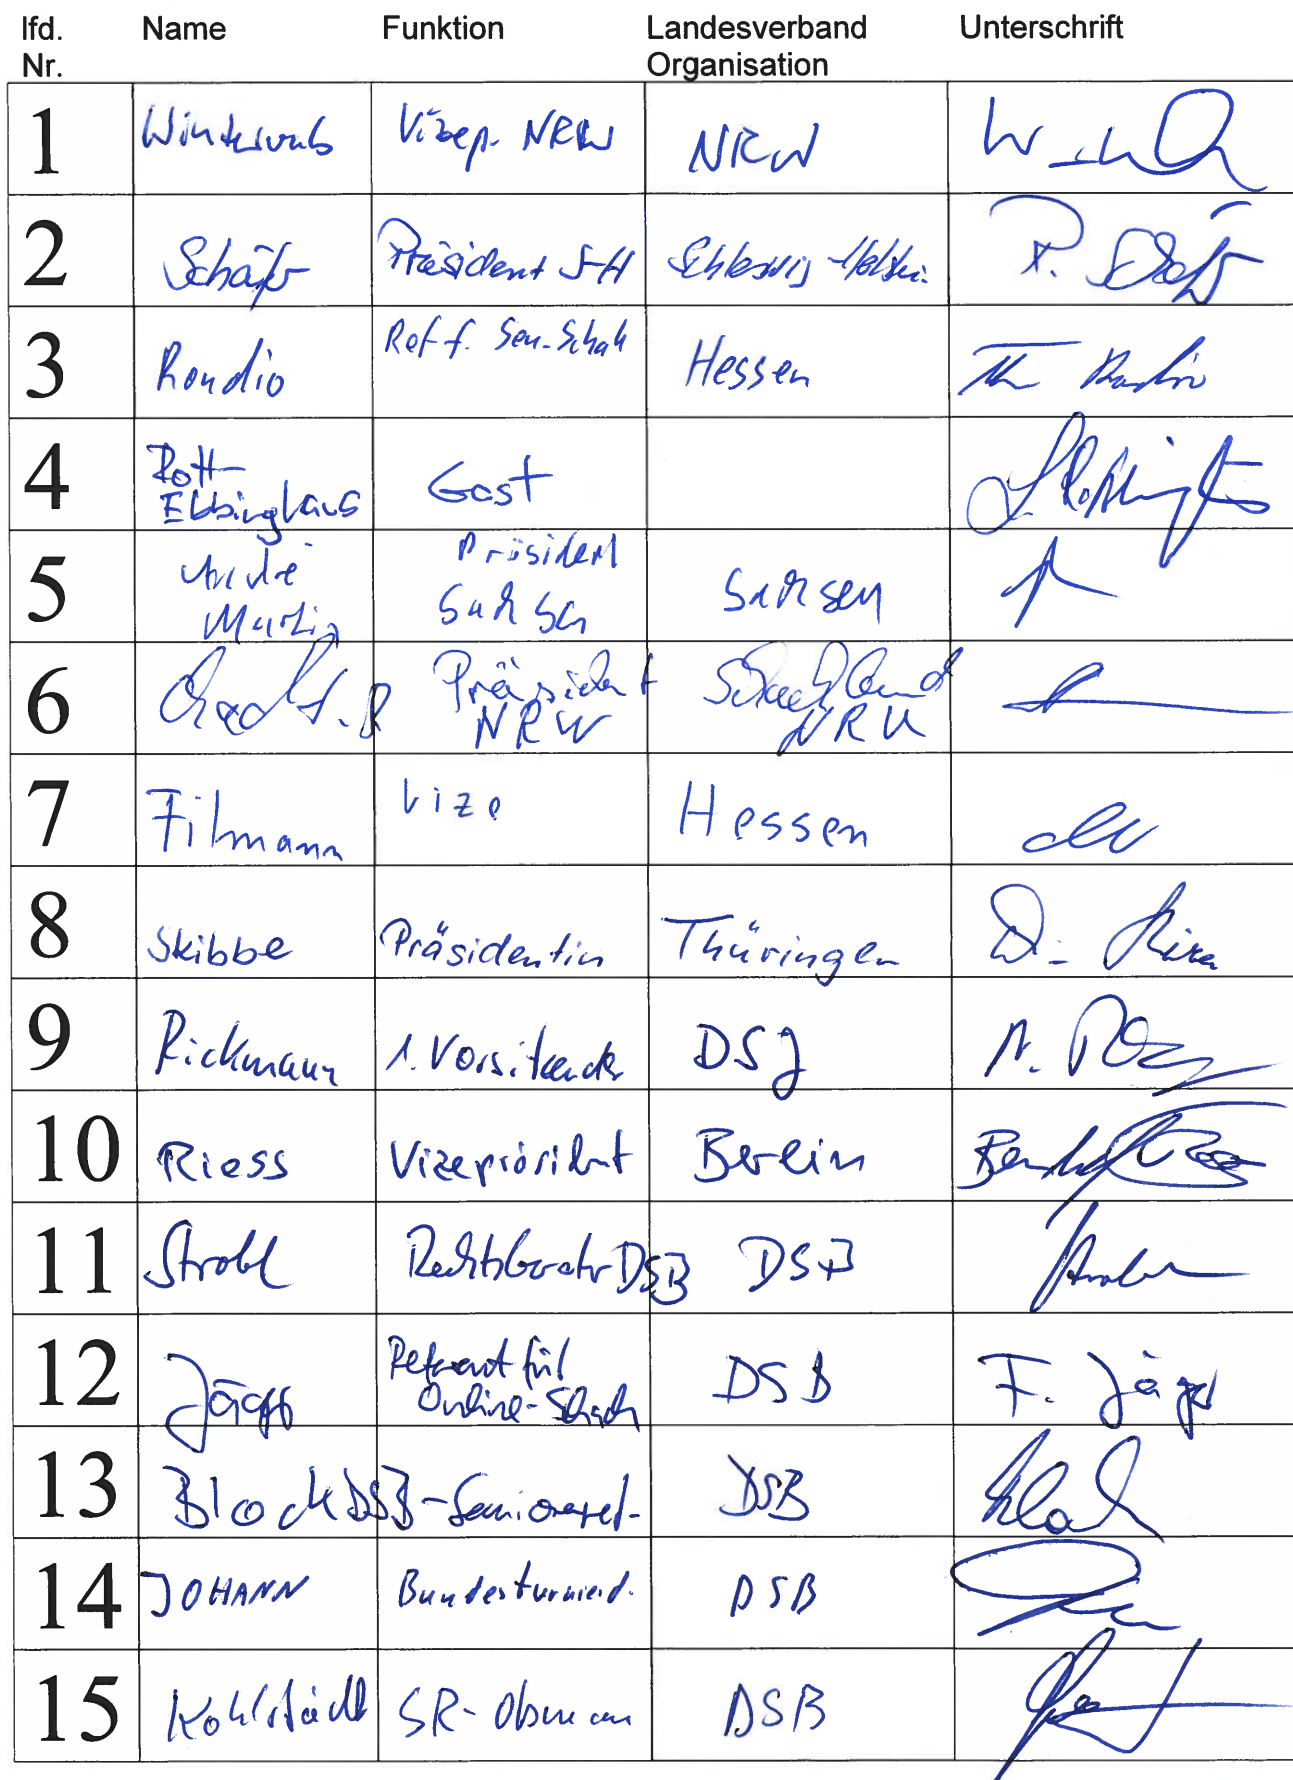 lfd. Nr. Name Funktion Landesverband Organisation Unterschrift
1 Vizep. NRW NRW
2 Schäfer Präsident S-H Schleswig-Holstein P. Schäfer
3 Rondio Ref f. Sen-Schach Hessen Th Rondio
4 Rott-Ebbinghaus Gast
5 André Martin Präsident Sachsen Sachsen
6 Präsident NRW Schachbund NRW
7 Filmann Vize Hessen
8 Skibbe Präsidentin Thüringen
9 Rickmann 1. Vorsitzender DSJ
10 Riess Vizepräsident Berlin
11 Strobl Rechtsberater DSB DSB
12 Jäger Referent für Online-Schach DSB F. Jäger
13 Block DSB-Seniorenref. DSB
14 JOHANN Bundesturnierd. DSB
15 Kohlstädt SR-Obmann DSB